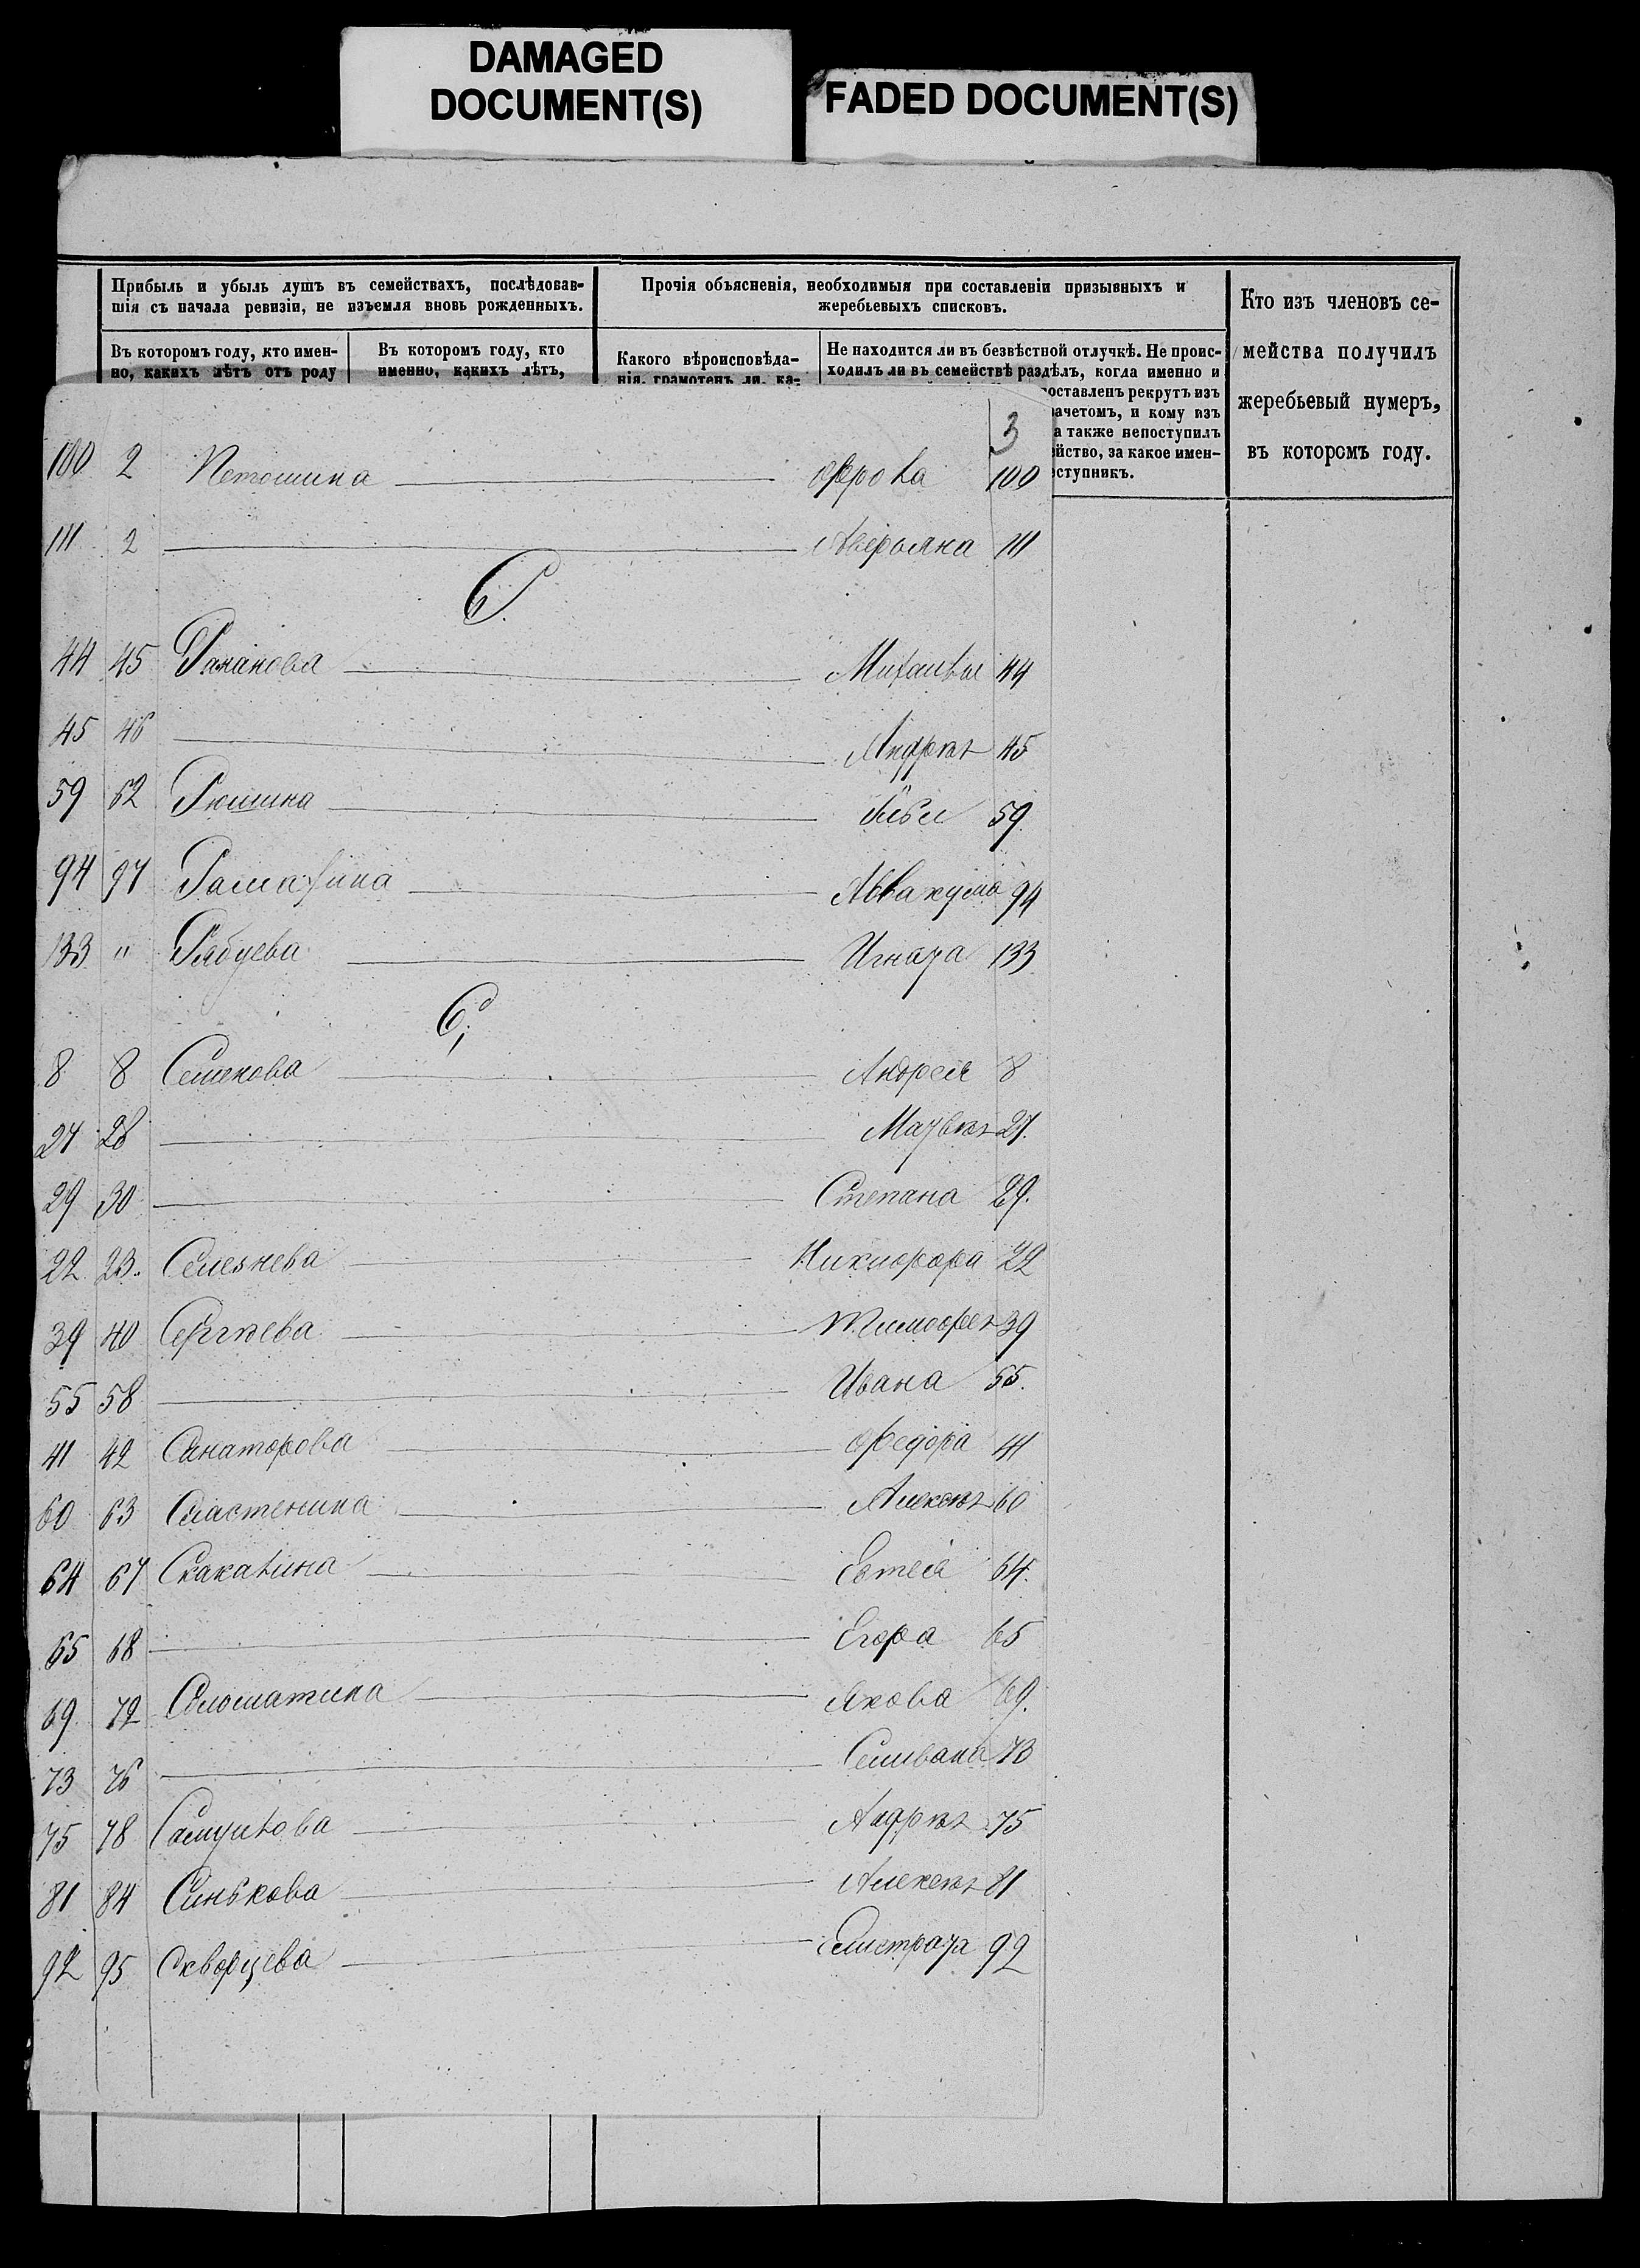 DAMAGED
DOCUMENT(S)
FADED DOCUMENT(S)
Прибыль и убыль душъ въ семействахъ, послѣдовав-
шія съ начала ревизіи, не изъемля вновь рожденныхъ.
Въ которомъ году, кто имен-
но, какихъ лѣтъ отъ роду
Въ которомъ году, кто
именно, какихъ лѣтъ,
Прочія объясненія, необходимыя при составленіи призывныхъ и
жеребьевыхъ списковъ.
Какого вѣроисповѣда-
нія, грамотенъ ли, ка-
Не находится ли въ безвѣстной отлучкѣ. Не проис-
ходилъ ли въ семействѣ раздѣлъ, когда именно и
оставленъ рекрутъ изъ
ачетомъ, и кому изъ
а также непоступилъ
йство, за какое имен-
оступникъ.
Кто изъ членовъ се-
мейства получилъ
жеребьевый нумеръ,
въ которомъ году.
3
100 2 Петошина Фрола 100
111 2 Аверьяна 111
Р.
44 45 Михаилы 44
45 46 Андрѣя 45
59 62 Рюшина 59
94 97 Аввакума 94
133 " Рябцева Игната 133
С.
8 8 Семенова Андрея 8
27 28 Матвѣя 27.
29 30 Степана 29.
22 23. Селезнева Никифора 22
39 40 Сергѣева Тимофея 39
55 58 Ивана 55.
41 42 Санаторова Федора 41
60 63 Сластенина Алексѣя 60
64 67 Скакалина Евтея 64.
65 68 Егора 65
69 72 Соломатина Якова 69.
73 76 Селивана 73
75 78 Самуилова Андрѣя 75
81 84 Синькова Алексѣя 81
92 95 Скворцева Елистрата 92